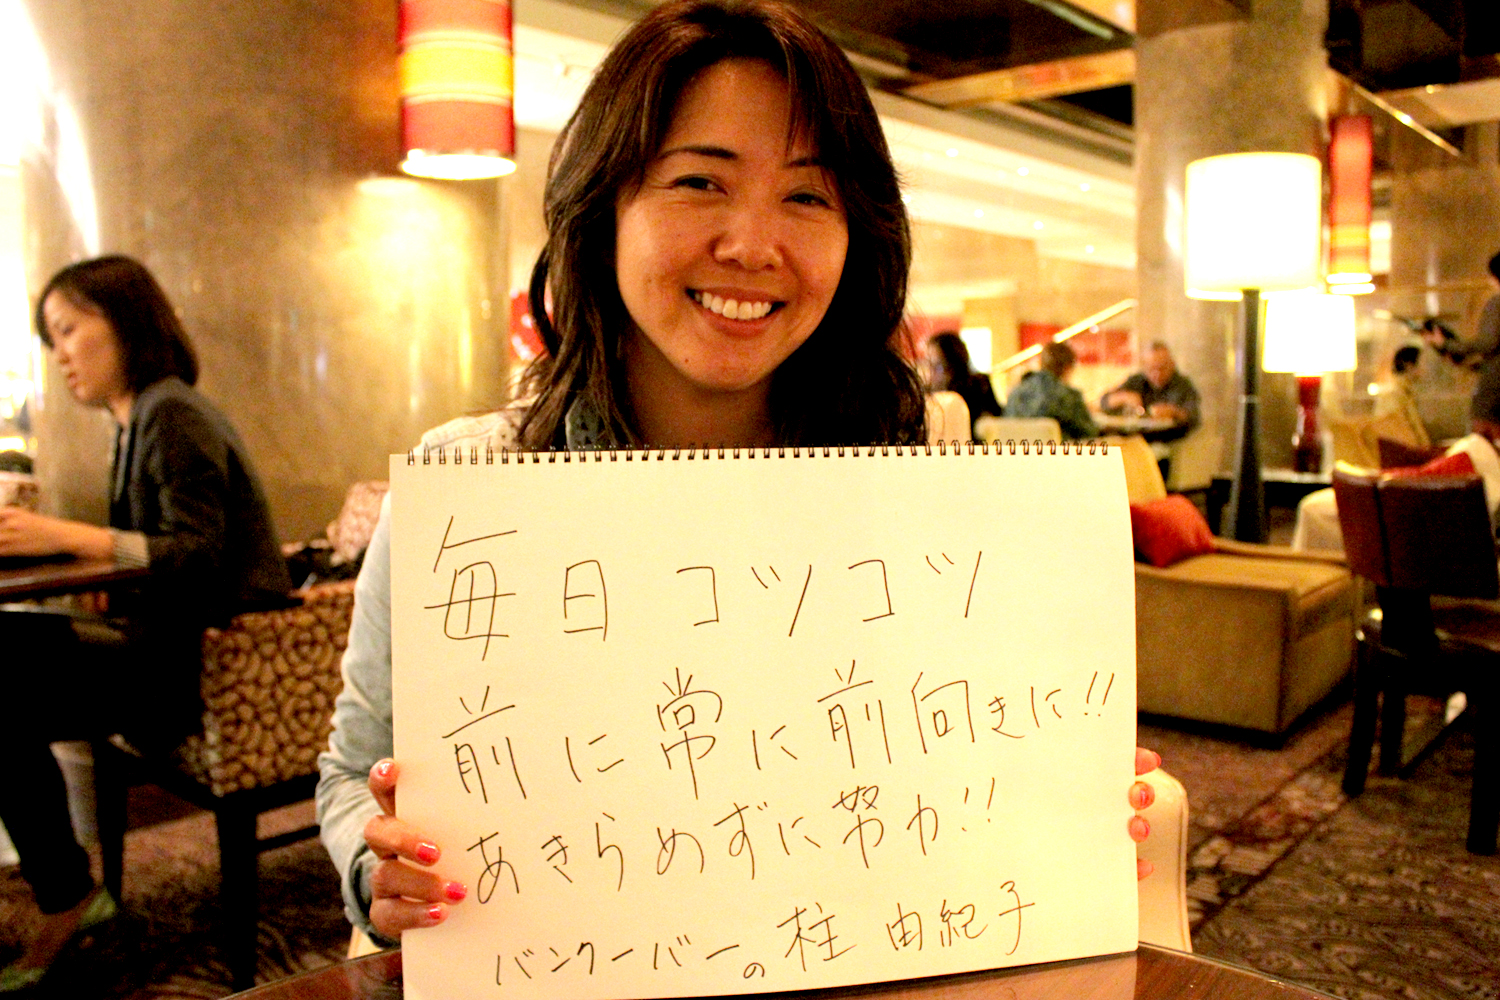 毎日コツコツ
前に常に前向きに!!
あきらめずに努力!!
バンクーバーの柱 由紀子